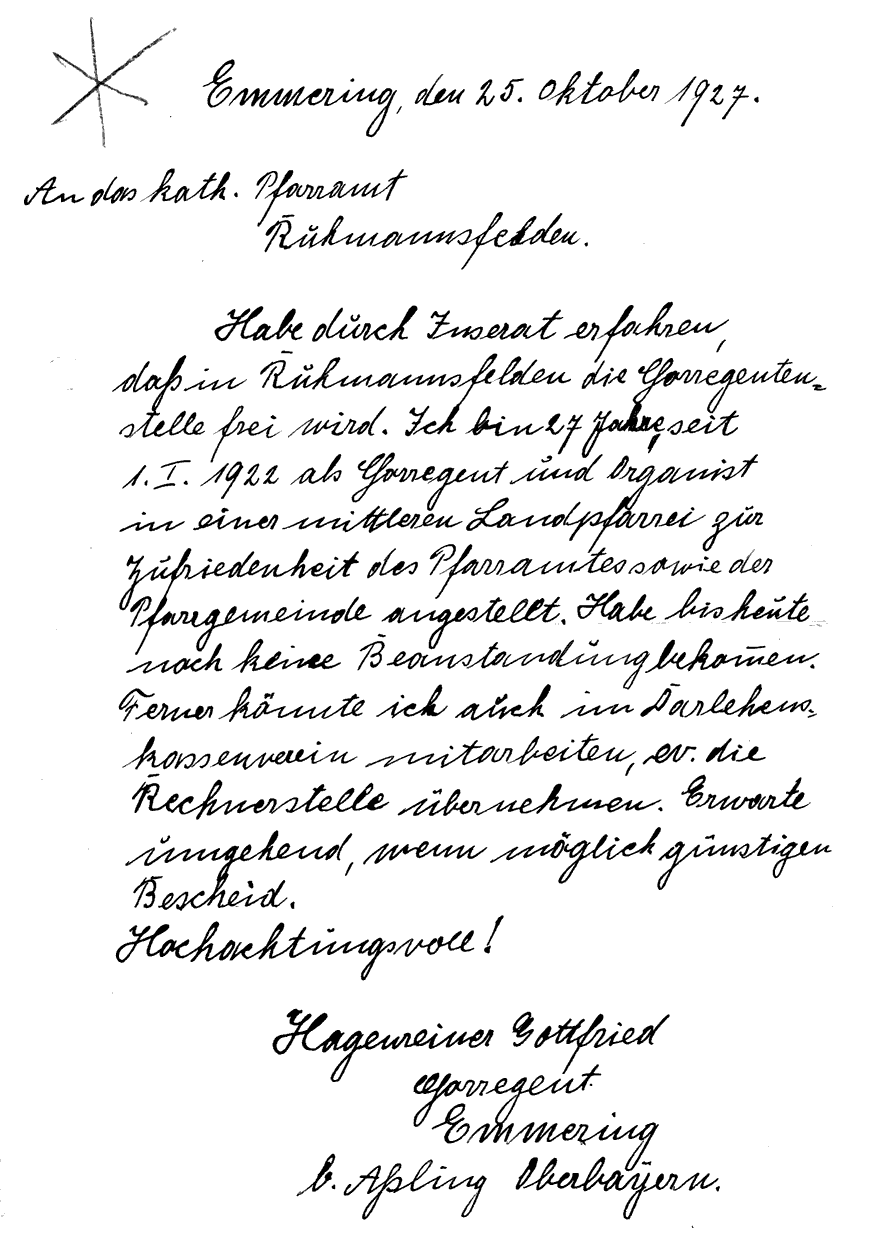 Emmering, den 25. Oktober 1927.
An das kath. Pfarramt
Ruhmannsfelden.
Habe durch Inserat erfahren,
daß in Ruhmannsfelden die Chorregenten=
stelle frei wird. Ich bin 27 Jahre, seit
1. I. 1922 als Chorregent und Organist
in einer mittleren Landpfarrei zur
Zufriedenheit des Pfarramtes sowie der
Pfarrgemeinde angestellt. Habe bis heute
noch keine Beanstandung bekom̄en.
Ferner könnte ich auch im Darlehens=
kassenverein mitarbeiten, ev. die
Rechnerstelle übernehmen. Erwarte
umgehend, wenn möglich günstigen
Bescheid.
Hochachtungsvoll!
Hagenreiner Gottfried
Chorregent
Emmering
b. Aßling Oberbayern.